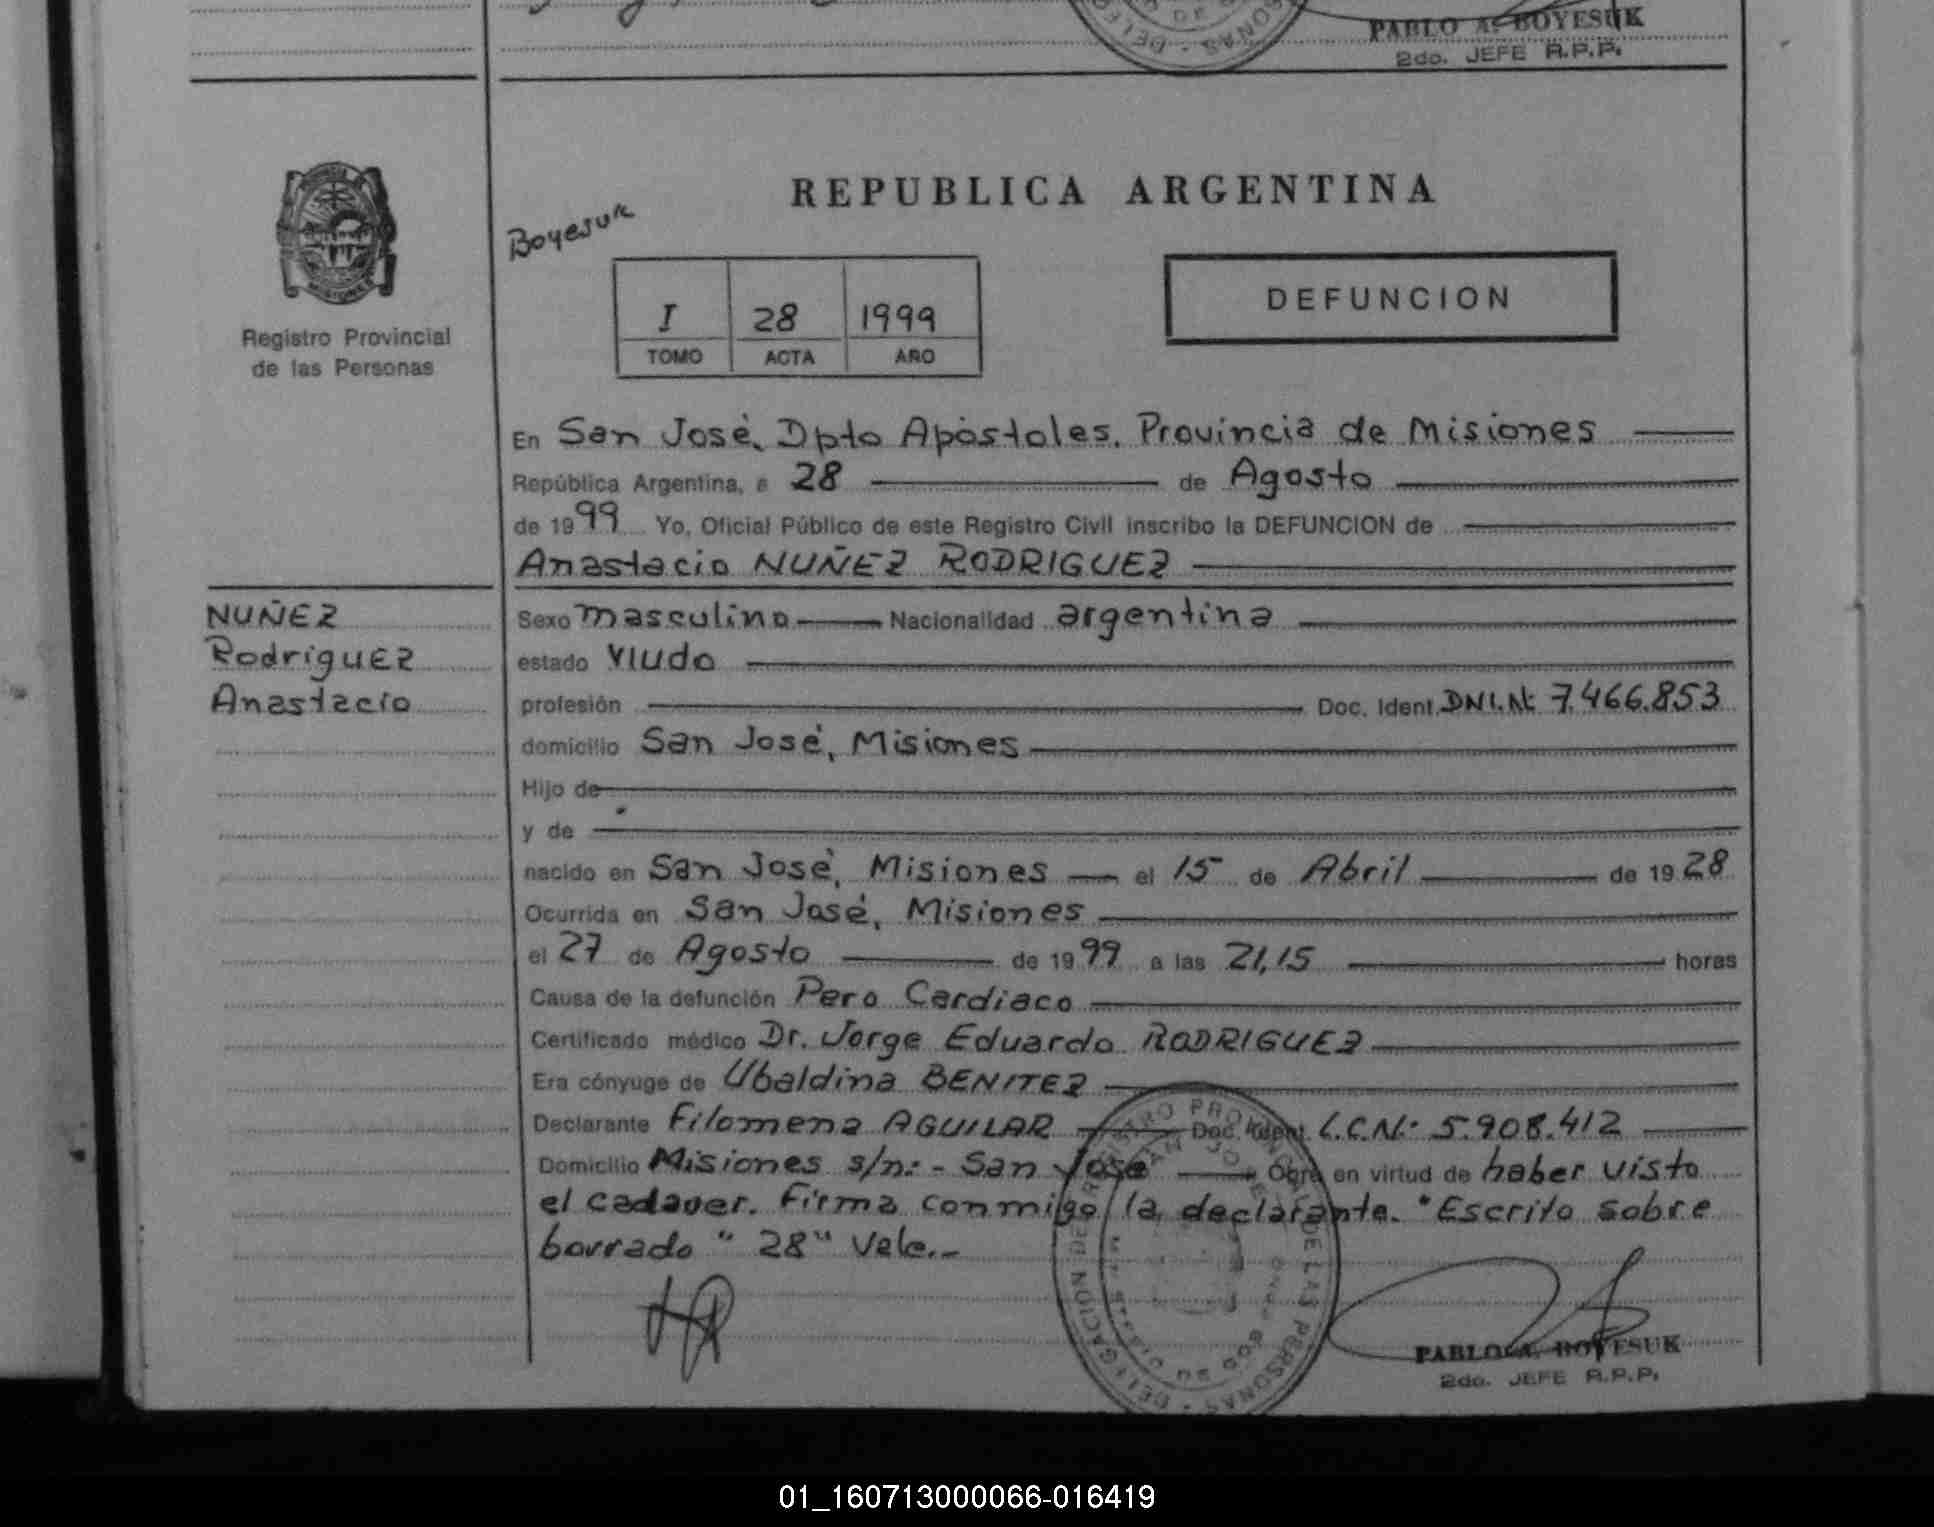 PABLO A. BOYESUK
2do. JEFE R.P.P.
REPUBLICA ARGENTINA
Boyesuk
MISIONES
Registro Provincial
de las Personas
I 28 1999
TOMO ACTA AÑO
DEFUNCION
En San José, Dpto Apóstoles, Provincia de Misiones
República Argentina, a 28 de Agosto
de 1999 Yo, Oficial Público de este Registro Civil inscribo la DEFUNCION de
Anastacio NUÑEZ RODRIGUEZ
NUÑEZ
Rodriguez
Anastacio
Sexo masculino Nacionalidad argentina
estado Viudo
profesión Doc. Ident. DNI.Nº 7.466.853
domicilio San José, Misiones
Hijo de
y de
nacido en San José, Misiones el 15 de Abril de 1928
Ocurrida en San José, Misiones
el 27 de Agosto de 1999 a las 21,15 horas
Causa de la defunción Paro Cardiaco
Certificado médico Dr. Jorge Eduardo RODRIGUEZ
Era cónyuge de Ubaldina BENITEZ
Declarante Filomena AGUILAR Doc. Ident. L.C.N: 5.908.412
Domicilio Misiones s/n: - San José Obra en virtud de haber visto
el cadaver. Firma conmigo la declarante. "Escrito sobre
borrado "28" Vale.-
DELEGACION REGISTRO PROVINCIAL DE LAS PERSONAS
SAN JOSE
PABLO A. BOYESUK
2do. JEFE R.P.P.
01_160713000066-016419